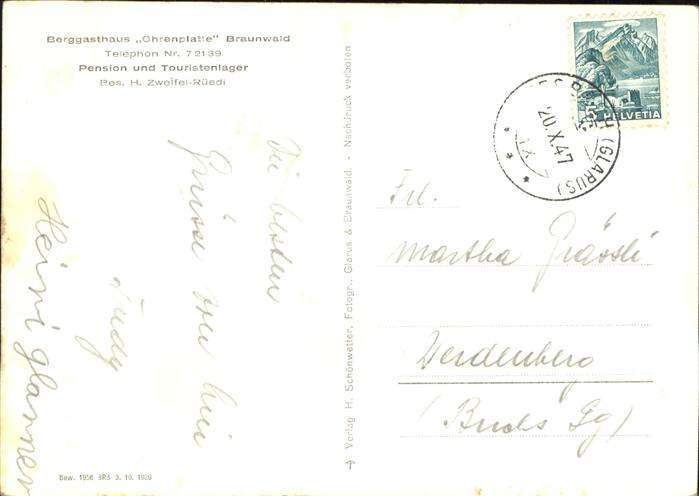 Berggasthaus „Ohrenplatte" Braunwald
Telephon Nr. 7 21 39
Pension und Touristenlager
Bes. H. Zweifel-Rüedi
Die besten
Grüsse von hier
Heini glarner
Verlag H. Schönwetter, Fotogr., Glarus & Braunwald. - Nachdruck verboten
Bew. 1956 BRB 3. 10. 1939
HELVETIA
5
(GLARUS)
20.X.47
Frl.
Martha Grässli
Werdenberg
(Buchs Sg)